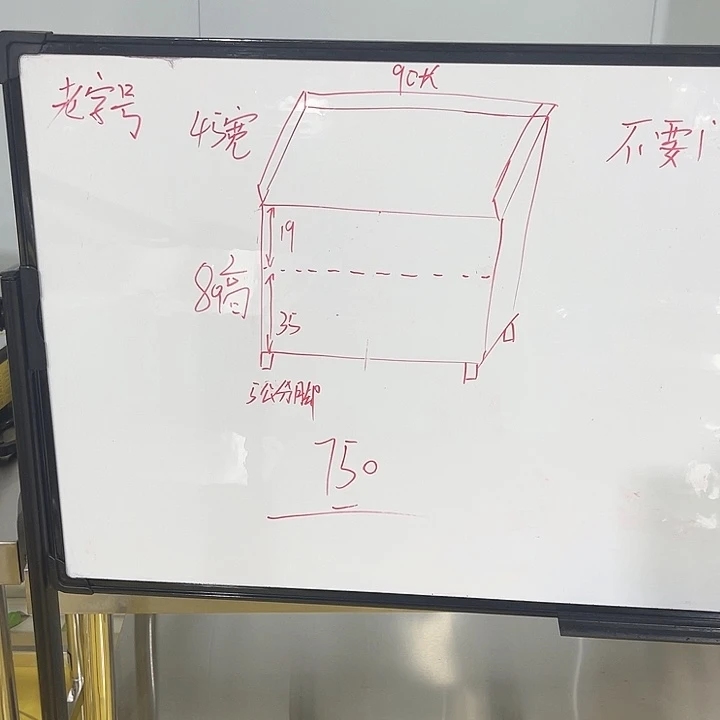 老字号
90长
45宽
不要门
19
89高
35
5公分脚
750